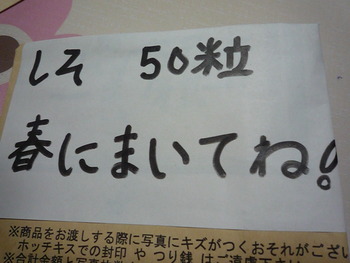 しそ 50粒
春にまいてね!
※商品をお渡しする際に写真にキズがつくおそれがござい
ホッチキスでの封印 や つり銭 はご遠慮下さい